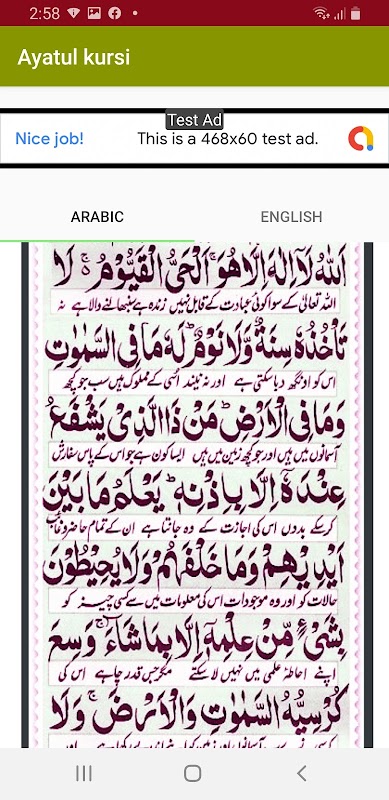 2:58
Ayatul kursi
Test Ad
Nice job!
This is a 468x60 test ad.
ARABIC
ENGLISH
اَللّٰهُ لَآ اِلٰهَ اِلَّا هُوَ ۚ اَلْحَیُّ الْقَیُّوْمُ ۚ لَا
اللہ تعالیٰ کے سوا کوئی عبادت کے قابل نہیں زندہ ہے سنبھالنے والا ہے نہ
تَاْخُذُهٗ سِنَةٌ وَّلَا نَوْمٌ ؕ لَهٗ مَا فِی السَّمٰوٰتِ
اس کو اونگھ دبا سکتی ہے اور نہ نیند اسی کے مملوک ہیں سب جو کچھ
وَمَا فِی الْاَرْضِ ؕ مَنْ ذَا الَّذِیْ یَشْفَعُ
آسمانوں میں ہیں اور جو کچھ زمین میں ہیں ایسا کون ہے جو اس کے پاس سفارش
عِنْدَهٗٓ اِلَّا بِاِذْنِهٖ ؕ یَعْلَمُ مَا بَیْنَ
کرسکے بدوں اس کی اجازت کے وہ جانتا ہے ان کے تمام حاضر و غائب
اَیْدِیْهِمْ وَمَا خَلْفَهُمْ ۚ وَلَا یُحِیْطُوْنَ
حالات کو اور وہ موجودات اس کی معلومات میں سے کسی چیز کو
بِشَیْءٍ مِّنْ عِلْمِهٖٓ اِلَّا بِمَا شَآءَ ۚ وَسِعَ
اپنے احاطۂ علمی میں نہیں لا سکتے مگر جس قدر چاہے اس کی
كُرْسِیُّهُ السَّمٰوٰتِ وَالْاَرْضَ ۚ وَلَا